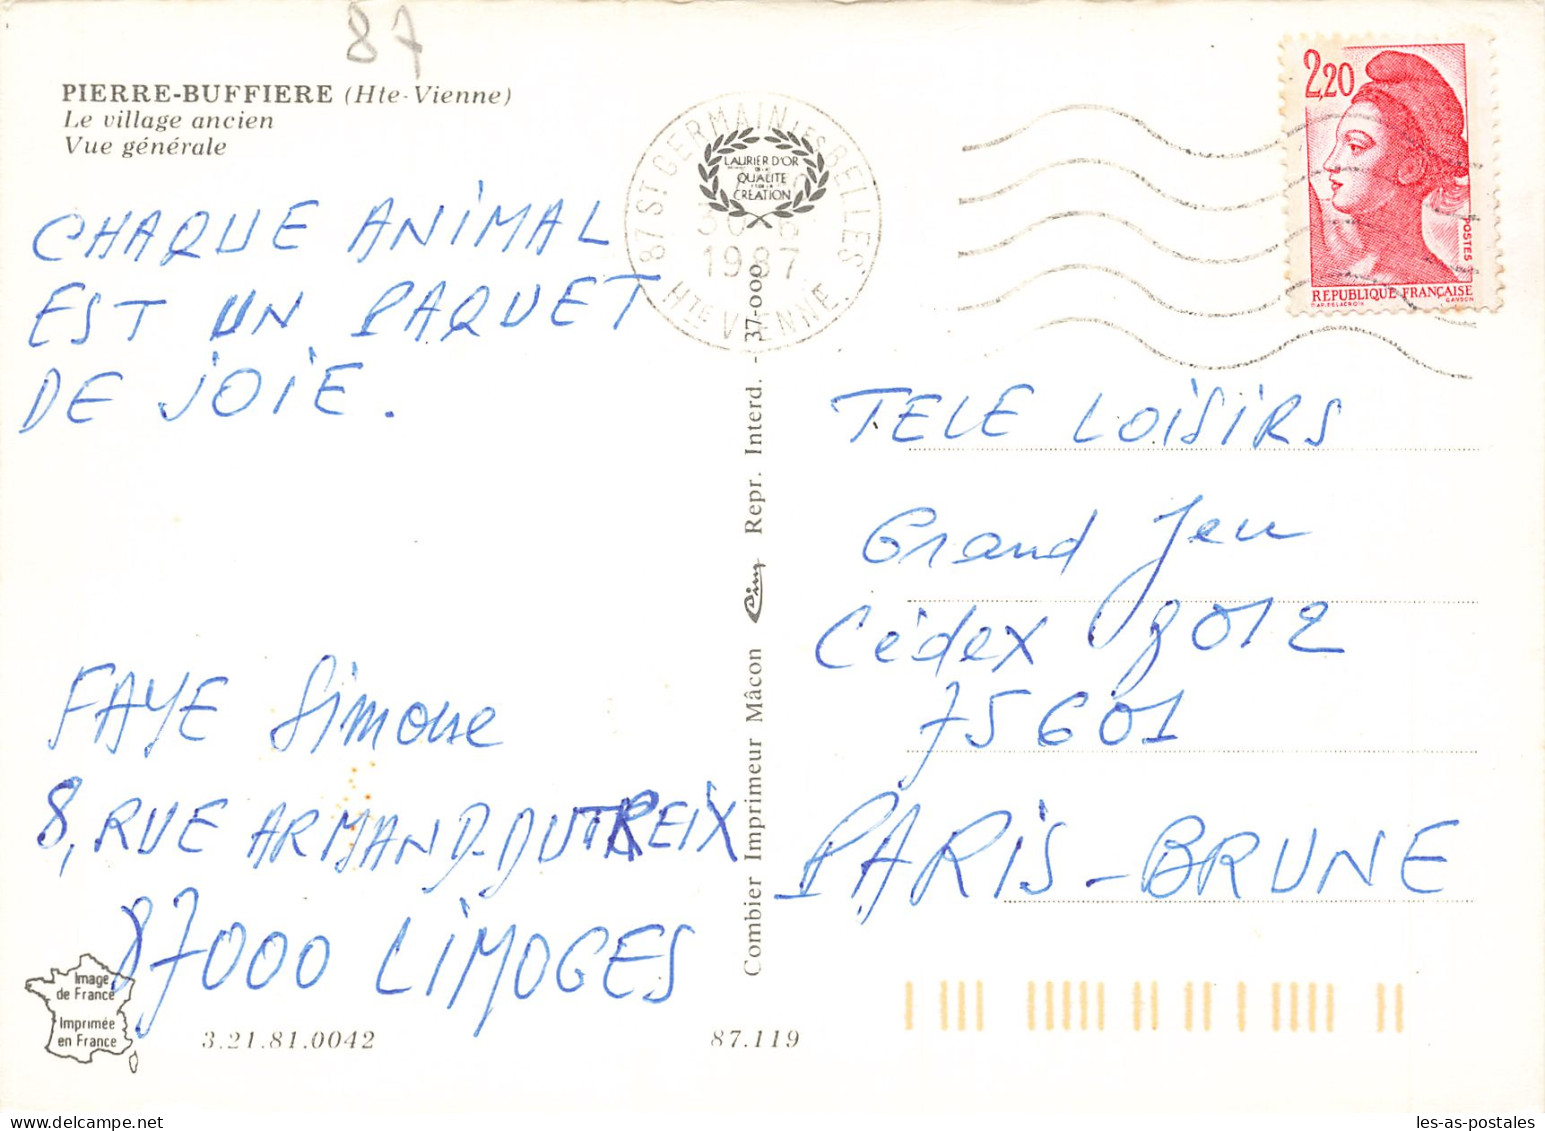 87
PIERRE-BUFFIERE (Hte-Vienne)
Le village ancien
Vue générale
CHAQUE ANIMAL
EST UN PAQUET
DE JOIE.
FAYE Simone
8, RUE ARMAND-DUTREIX
87000 LIMOGES
Image
de France
Imprimée
en France
3.21.81.0042
87.119
Combier Imprimeur Mâcon Cim Repr. Interd. - 37-000
87 ST GERMAIN LES BELLES
1987
HTE VIENNE
LAURIER D'OR
DE LA
QUALITE
CREATION
2,20
POSTES
REPUBLIQUE FRANÇAISE
D'APRES DELACROIX GANDON
TELE LOISIRS
Grand Jeu
Cédex 9012
75601
PARIS-BRUNE
les-as-postales